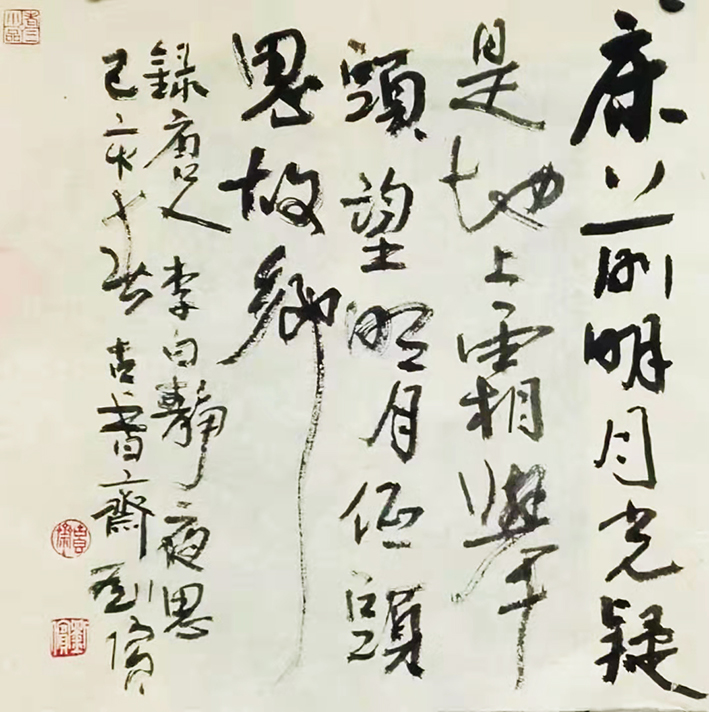 床前明月光疑
是地上霜舉
頭望明月低頭
思故鄉
録唐人李白靜夜思
己亥 吉書齋劉